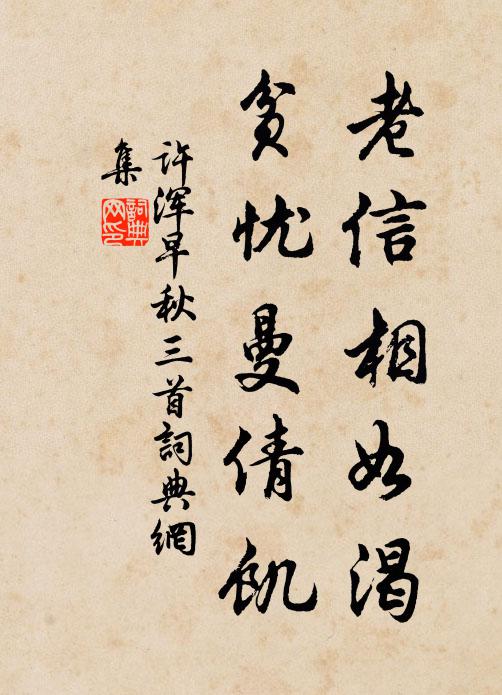 老信相如渴
贫忧曼倩饥
许浑早秋三首詞典網
集
詞典網印